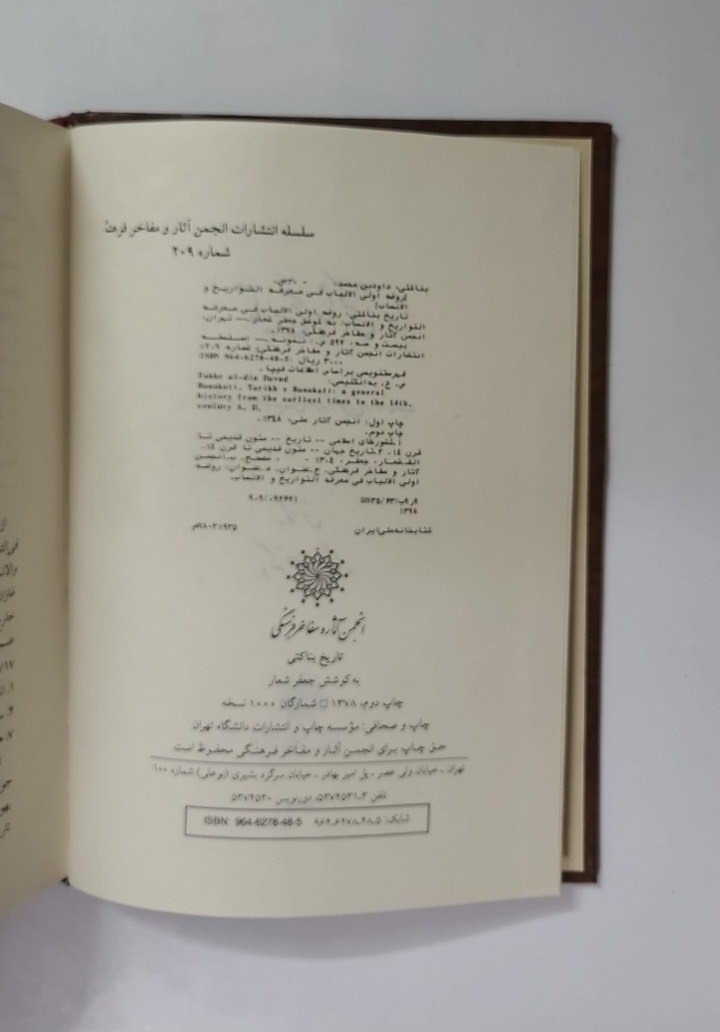 سلسله انتشارات انجمن آثار و مفاخر فرهنگ
شماره ۲۰۹
بناکتی، داودبن محمد، - ۷۳۰ق.
[روضه اولی الالباب فی معرفه التواریخ و
الانساب]
تاریخ بناکتی: روضه اولی الالباب فی معرفه
التواریخ و الانساب/ به کوشش جعفر شعار. -- تهران:
انجمن آثار و مفاخر فرهنگی، ۱۳۷۸.
بیست و سه، ۵۹۴ ص.: نمونه. --
انتشارات انجمن آثار و مفاخر فرهنگی؛ شماره ۲۰۹)
ISBN 964-6278-48-5: ریال
فهرستنویسی براساس اطلاعات فیپا.
Fakhr al-din Davud
ص. ع. به انگلیسی:
Banakati. Tarikh e Banakati: a general
history from the earliest times to the 14th.
century A. D.
چاپ اول: انجمن آثار ملی، ۱۳۴۸.
چاپ دوم.
۱. کشورهای اسلامی -- تاریخ -- متون قدیمی تا
قرن ۱۴. ۲. تاریخ جهان -- متون قدیمی تا قرن ۱۴.
الف. شعار، جعفر، ۱۳۰۴ - ، مصحح. ب. انجمن
آثار و مفاخر فرهنگی. ج. عنوان. د. عنوان: روضه
اولی الالباب فی معرفه التواریخ و الانساب.
۹۰۹/۰۹۷۶۷۱
۱۳۷۸
کتابخانه ملی ایران
۷۸-۲۱۹۳۵م
انجمن آثار و مفاخر فرهنگی
تاریخ بناکتی
به کوشش جعفر شعار
چاپ دوم، ۱۳۷۸ □ شمارگان ۱۰۰۰ نسخه
چاپ و صحافی: مؤسسه چاپ و انتشارات دانشگاه تهران
حق چاپ برای انجمن آثار و مفاخر فرهنگی محفوظ است
تهران ـ خیابان ولی عصر ـ پل امیر بهادر ـ خیابان سرگرد بشیری (بوعلی) شماره ۱۰۰
تلفن ۳ـ۵۳۷۴۵۳۱، دورنویس ۵۳۷۴۵۳۰
شابک: ۵ـ۴۸ـ۶۲۷۸ـ۹۶۴ ISBN: 964-6278-48-5